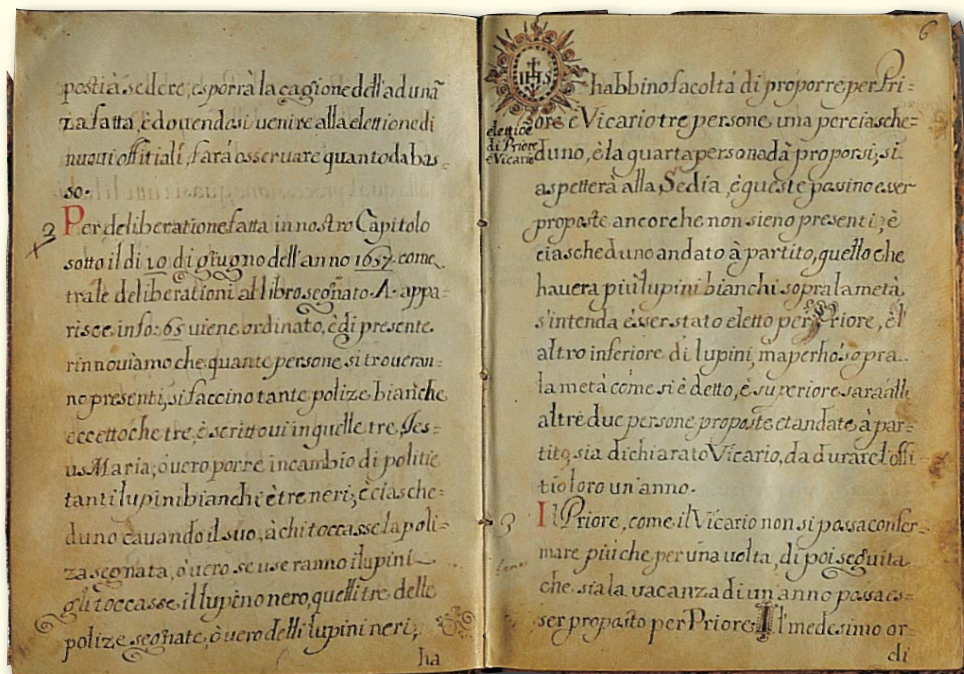 posti à sedere, esporrà la cagione dell'adunã
za fatta, è dovendosi venire alla elettione di
nuovi offitiali, farà osservare quanto da bas=
so.
2 Per deliberatione fatta in nostro Capitolo
sotto il dì 10 di giugno dell'anno 1657. come
trale deliberationi al libro segñato. A. appa=
risce info: 65 viene ordinato, è di presente
rinnoviamo che quante persone si troveran=
no presenti, si faccino tante polize bianche
eccetto che tre, è scritto vi in quelle tre, Jes=
us Maria; ò vero porre in cambio di politie
tanti lupini bianchi è tre neri; è ciasche=
duno cavando il suo, à chi toccasse la poli=
za segnata, ò vero se useranno i lupini
gli toccasse il lupino nero, quelli tre delle
polize segnate, ò vero delli lupini neri;
ha
6
IHS
habbino facoltá di proporre per Pri=
ore è Vicario tre persone una per ciasche=
elettióe
di Priore
è Vicario
duno, è la quarta persona dà proporsi, si
aspetterà alla Sedia, è queste possino esser
proposte ancorche non sieno presenti; è
ciascheduno andato à partito, quello che
havera più lupini bianchi sopra la metà,
s'intenda ésser stato eletto per Priore, è l'
altro inferiore di lupini, ma perhó sopra
la metà come si è detto, è superiore sarà alli
altre due persone proposte et andate à par=
tito, sia dichiarato Vicario, da durare l'offi
tio loro un'anno.
3 Il Priore, come il Vicario non si possa confer=
mare più che per una volta, di poi seguita
che sia la vacanza di un anno possa es=
ser proposto per Priore. Il medesimo or=
di